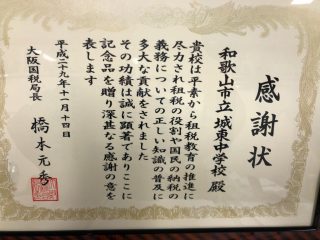 感謝状
和歌山市立城東中学校 殿
貴校は平素から租税教育の推進に
尽力され租税の役割や国民の納税の
義務についての正しい知識の普及に
多大な貢献をされました
その功績は誠に顕著でありここに
記念品を贈り深甚なる感謝の意を
表します
平成二十九年十一月十四日
大阪国税局長
橋本元秀